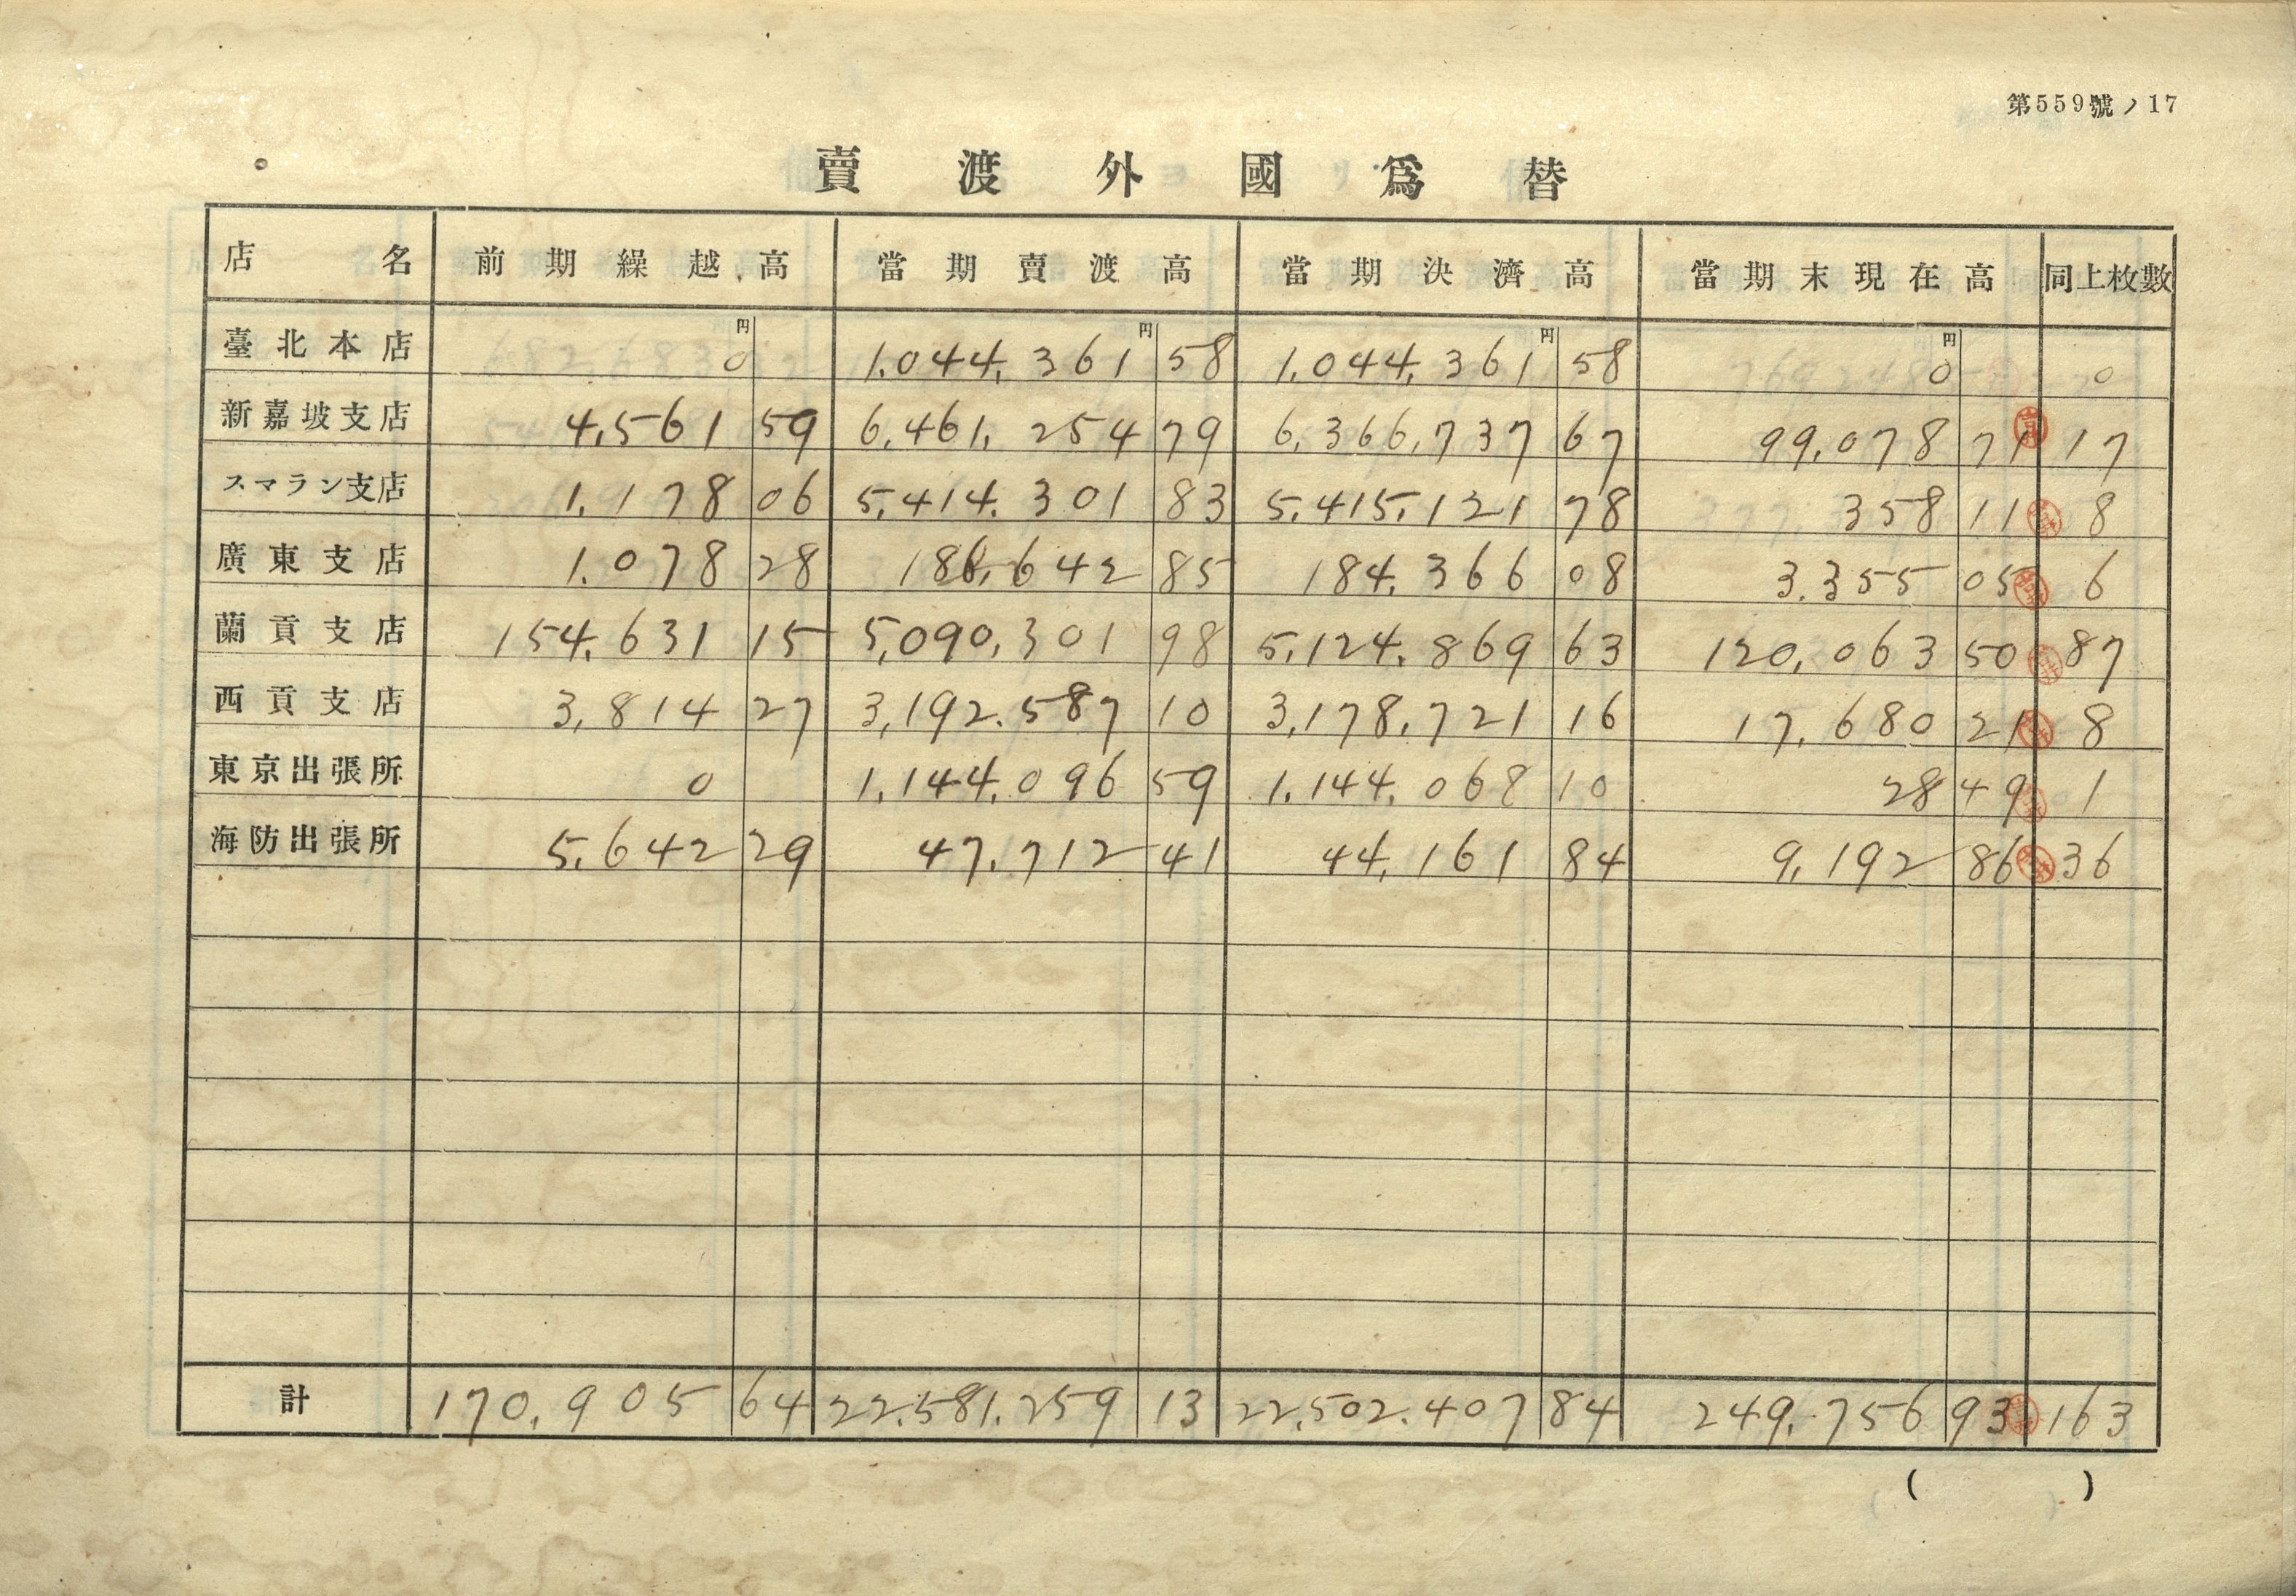 第559號ノ17
賣渡外國爲替
店名 前期繰越高 當期賣渡高 當期決濟高 當期末現在高 同上枚數
円 円 円 円
臺北本店 0 1,044,361 58 1,044,361 58 0 0
新嘉坡支店 4,561 59 6,461,254 79 6,366,737 67 99,078 71 17
スマラン支店 1,178 06 5,414,301 83 5,415,121 78 358 11 8
廣東支店 1,078 28 186,642 85 184,366 08 3,355 05 6
蘭貢支店 154,631 15 5,090,301 98 5,124,869 63 120,063 50 87
西貢支店 3,814 27 3,192,587 10 3,178,721 16 17,680 21 8
東京出張所 0 1,144,096 59 1,144,068 10 28 49 1
海防出張所 5,642 29 47,712 41 44,161 84 9,192 86 36
計 170,905 64 22,581,259 13 22,502,407 84 249,756 93 163
( )